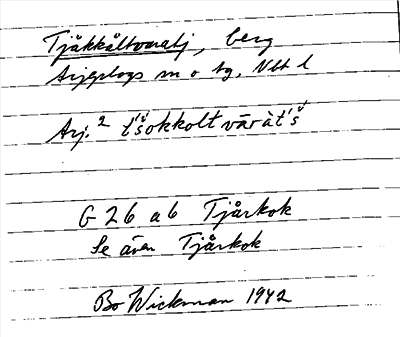 Tjåkkåltvaratj, berg
Arjeplogs sn o tg, Nbt l
Arj.² t´šokkolt vāràt´š
G 26 a b Tjårkok
Se även Tjårkok
Bo Wickman 1942